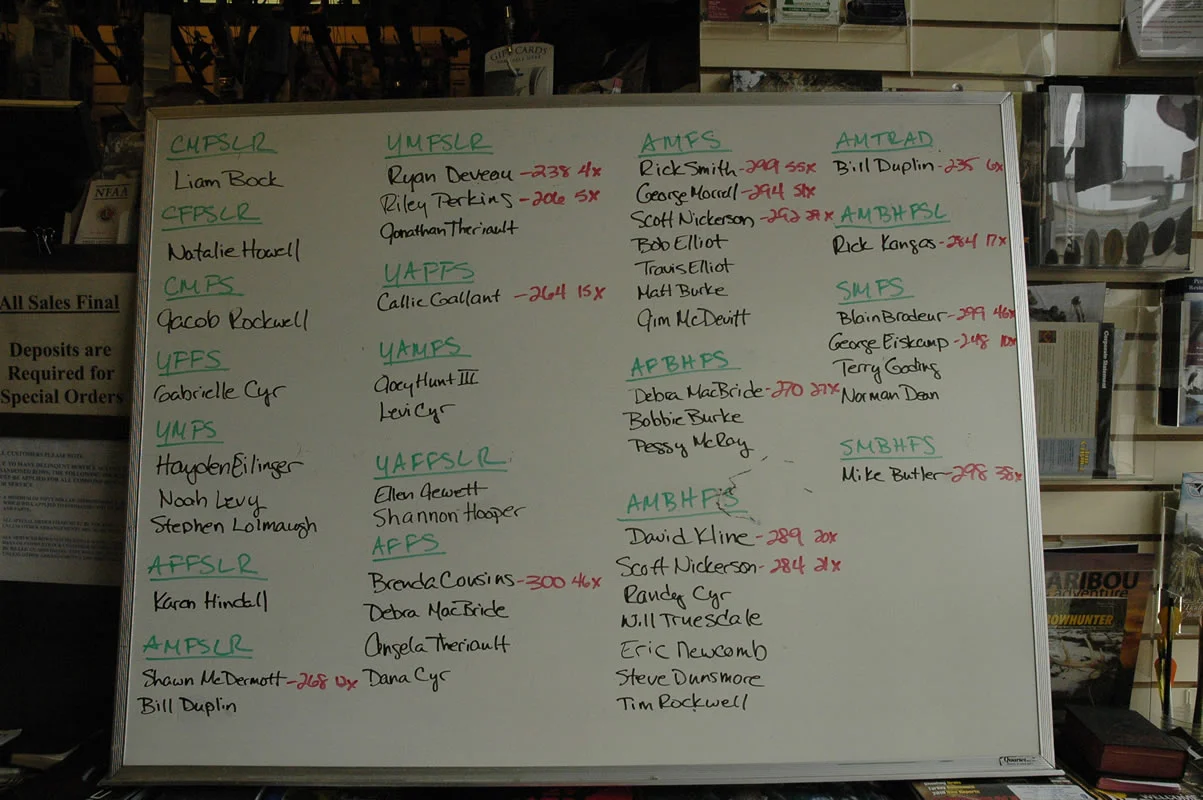 GIFT CARDS
AVAILABLE HERE
NFAA
All Sales Final
Deposits are
Required for
Special Orders
CMFSLR
Liam Bock
CFPSLR
Natalie Howell
CMPS
Jacob Rockwell
YFFS
Gabrielle Cyr
YMFS
Hayden Eilinger
Noah Levy
Stephen Lolmaugh
AFFSLR
Karen Hindall
AMFSLR
Shawn McDermott-268 12x
Bill Duplin
YMFSLR
Ryan Deveau-238 4x
Riley Perkins-206 5x
Jonathan Theriault
YAFFS
Callie Gallant-264 15x
YAMFS
Joey Hunt III
Levi Cyr
YAFFSLR
Ellen Jewett
Shannon Hooper
AFFS
Brenda Cousins-300 46x
Debra MacBride
Angela Theriault
Dana Cyr
AMFS
Rick Smith-299 55x
George Morrell-294 51x
Scott Nickerson-292 29x
Bob Elliot
Travis Elliot
Matt Burke
Jim McDevitt
AFBHFS
Debra MacBride-270 27x
Bobbie Burke
Peggy McRay
AMBHFS
David Kline-289 20x
Scott Nickerson-284 21x
Randy Cyr
Will Truesdale
Eric Newcomb
Steve Dunsmore
Tim Rockwell
AMTRAD
Bill Duplin-235 6x
AMBHFSL
Rick Kangas-284 17x
SMFS
Blain Bradeur-299 46x
George Eiskamp-248 10x
Terry Goding
Norman Dean
SMBHFS
Mike Butler-298 38x
Quartet
ARIBOU
adventure
BOWHUNTER